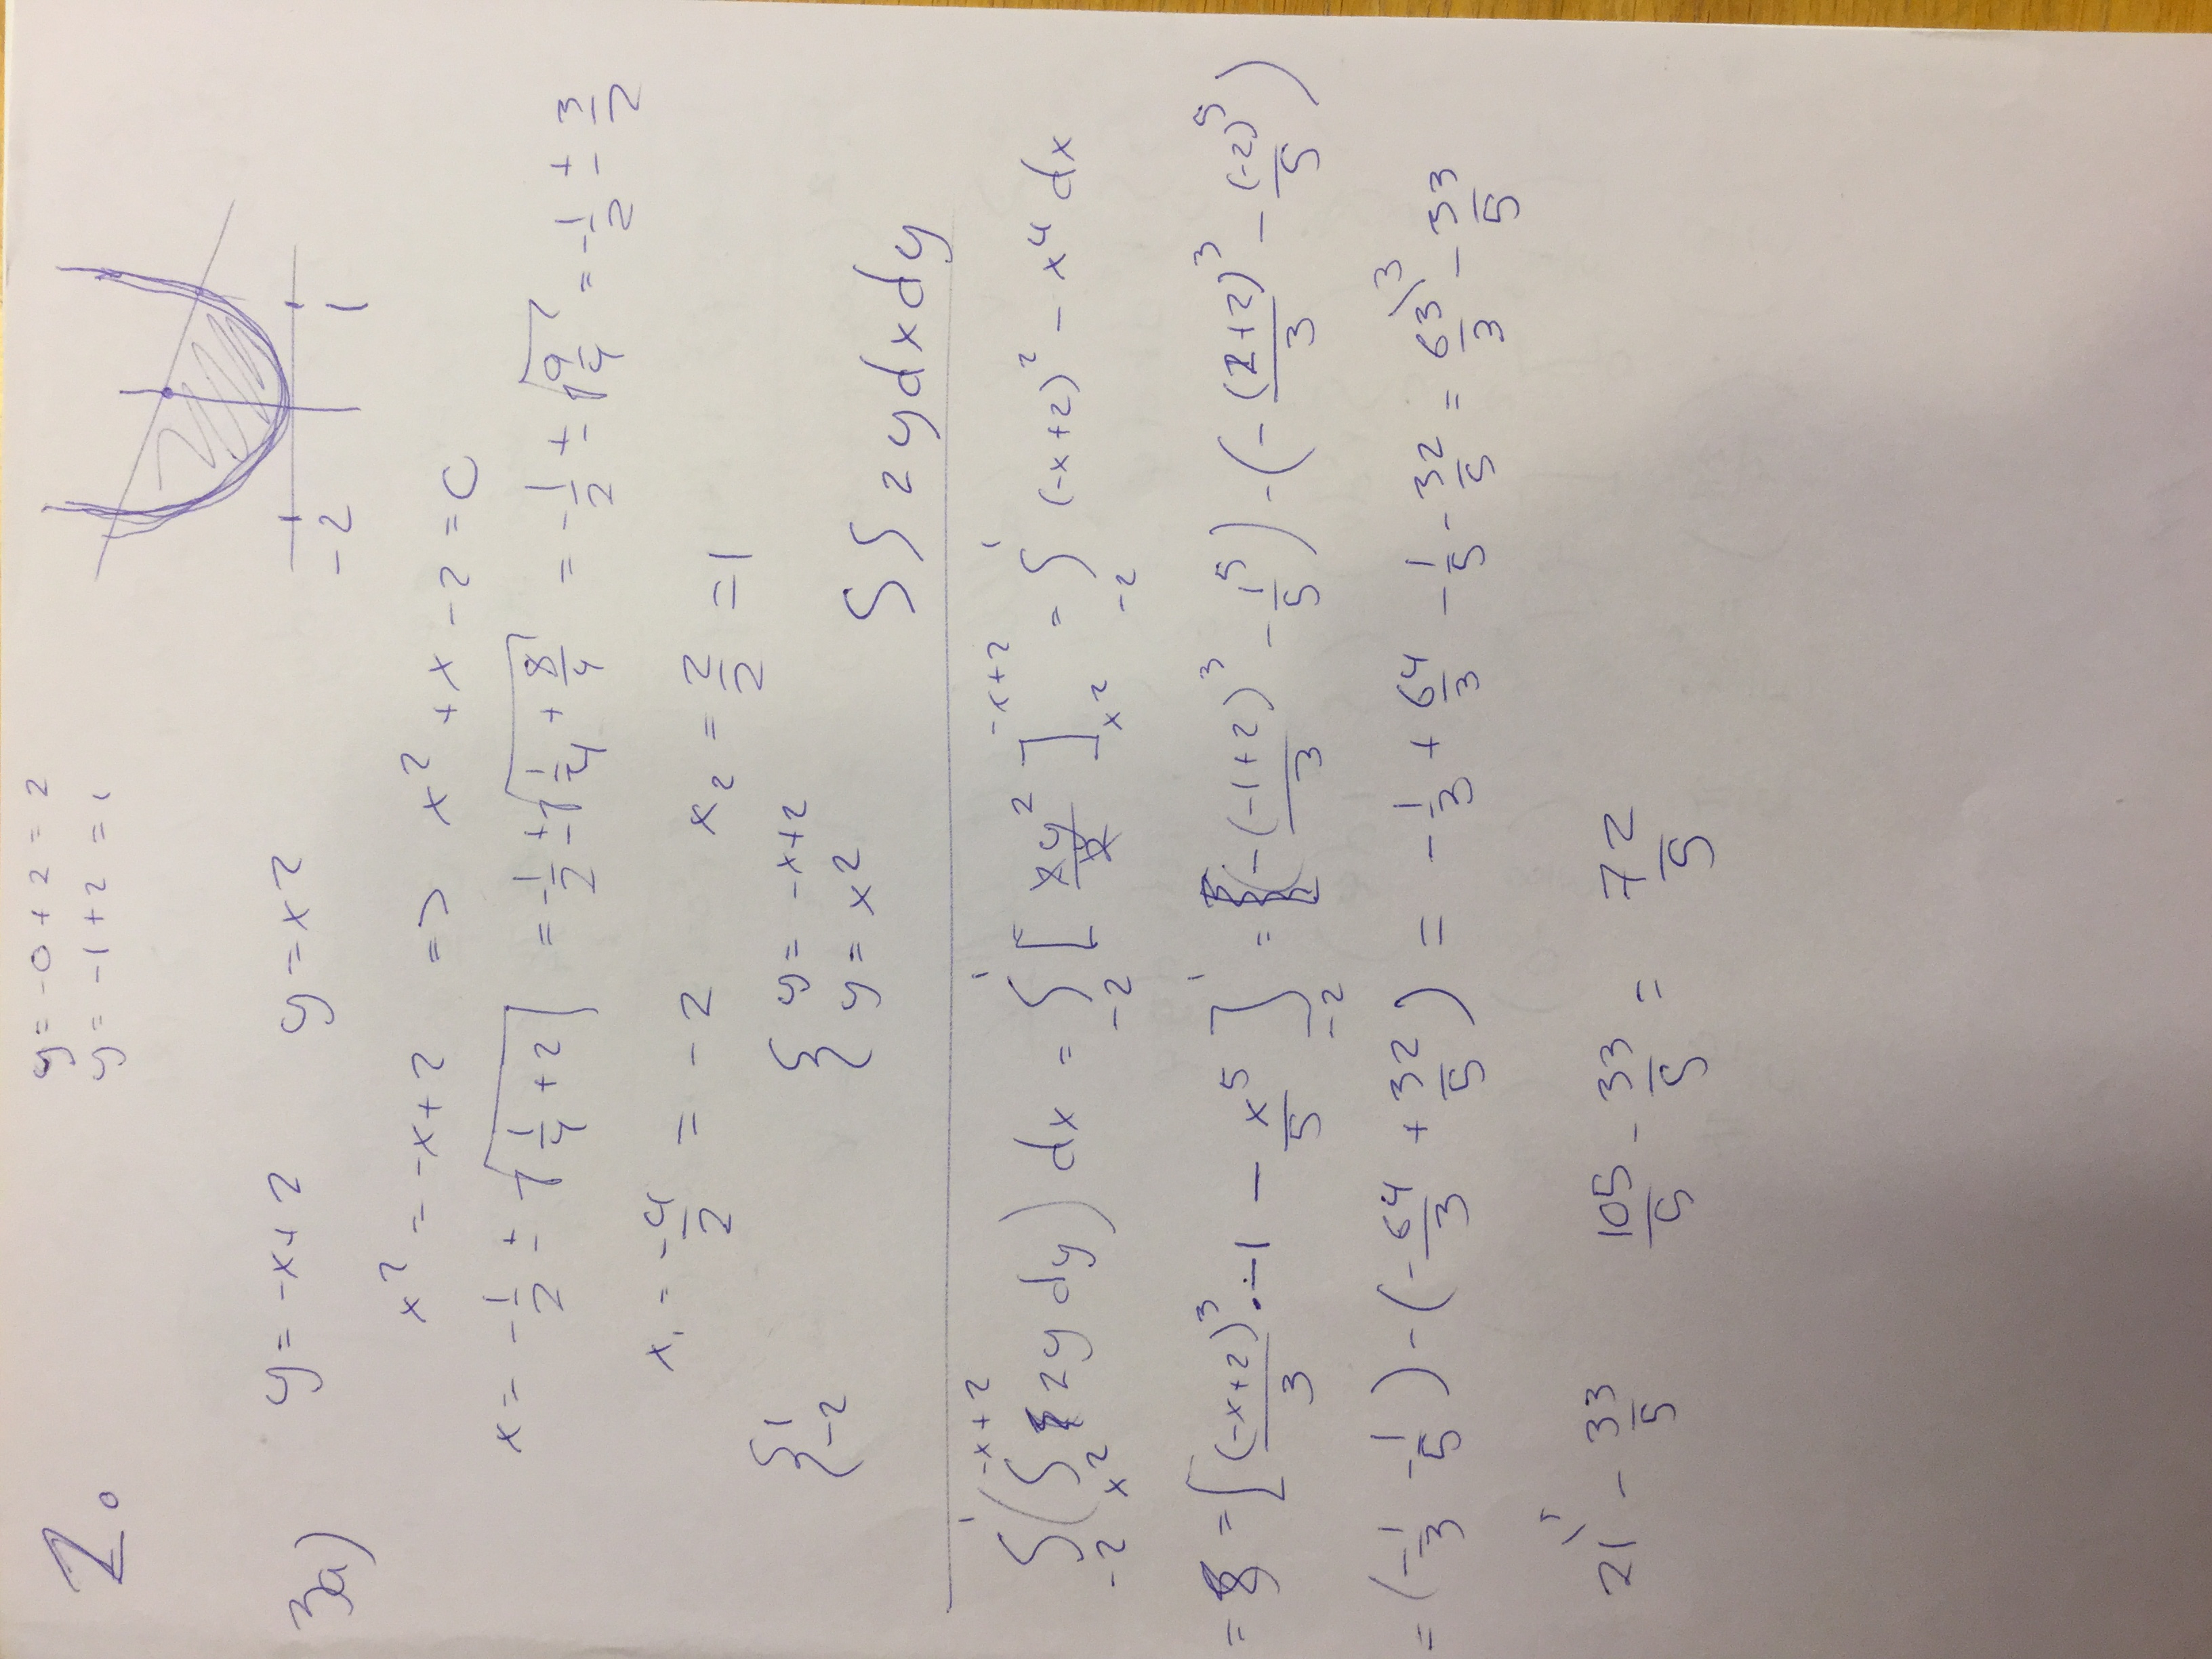 2.
y = -0 + 2 = 2
y = -1 + 2 = 1
-2 1
3a) y = -x + 2 y = x2
x² = -x + 2 => x² + x - 2 = 0
x = -1/2 ± √(1/4 + 2) = -1/2 ± √(1/4 + 8/4) = -1/2 ± √(9/4) = -1/2 ± 3/2
x₁ = -4/2 = -2 x₂ = 2/2 = 1
{ 1 { y = -x + 2
-2 y = x²
∫∫ 2y dx dy
∫₋₂¹ ( ∫ₓ₂^(-x+2) 2y dy ) dx = ∫₋₂¹ [ 2y²/2 ]ₓ₂^(-x+2) = ∫₋₂¹ (-x+2)² - x⁴ dx
= = [ (-x+2)³/3 · -1 - x⁵/5 ]₋₂¹ = (-(-1+2)³/3 - 1⁵/5) - (-(2+2)³/3 - (-2)⁵/5)
= (-1/3 - 1/5) - (-64/3 + 32/5) = -1/3 + 64/3 - 1/5 - 32/5 = 63/3 /3 - 33/5
21 - 33/5 105/5 - 33/5 = 72/5